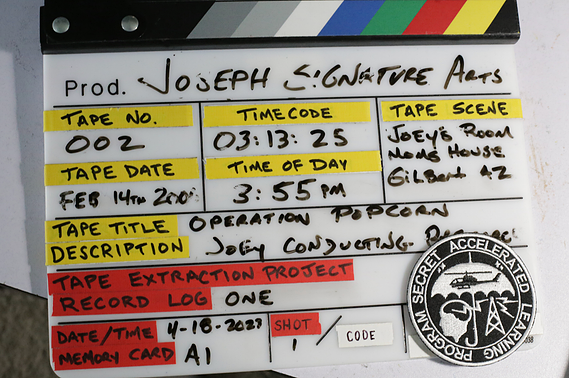 Prod. JOSEPH SIGNATURE ARTS
TAPE NO.
002
TIMECODE
03:13:25
TAPE SCENE
JOEY'S ROOM
MOMS HOUSE
GILBERT AZ
TAPE DATE
FEB 14TH
TIME OF DAY
3:55 PM
TAPE TITLE OPERATION POPCORN
DESCRIPTION JOEY CONDUCTING
TAPE EXTRACTION PROJECT
RECORD LOG ONE
DATE/TIME 4-18-2023
MEMORY CARD A1
SHOT
1
CODE
SECRET ACCELERATED LEARNING PROGRAM